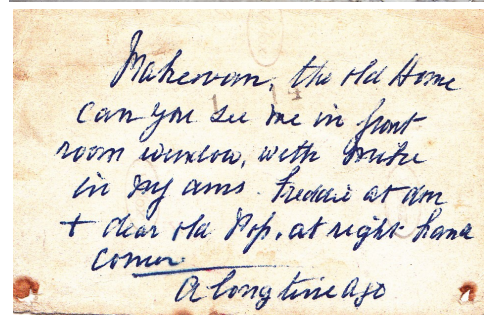 Makervan, the old Home
can you see me in front
room window, with Mike
in my arms. Freddie at door
+ dear old Pop, at right hand
corner
A long time ago